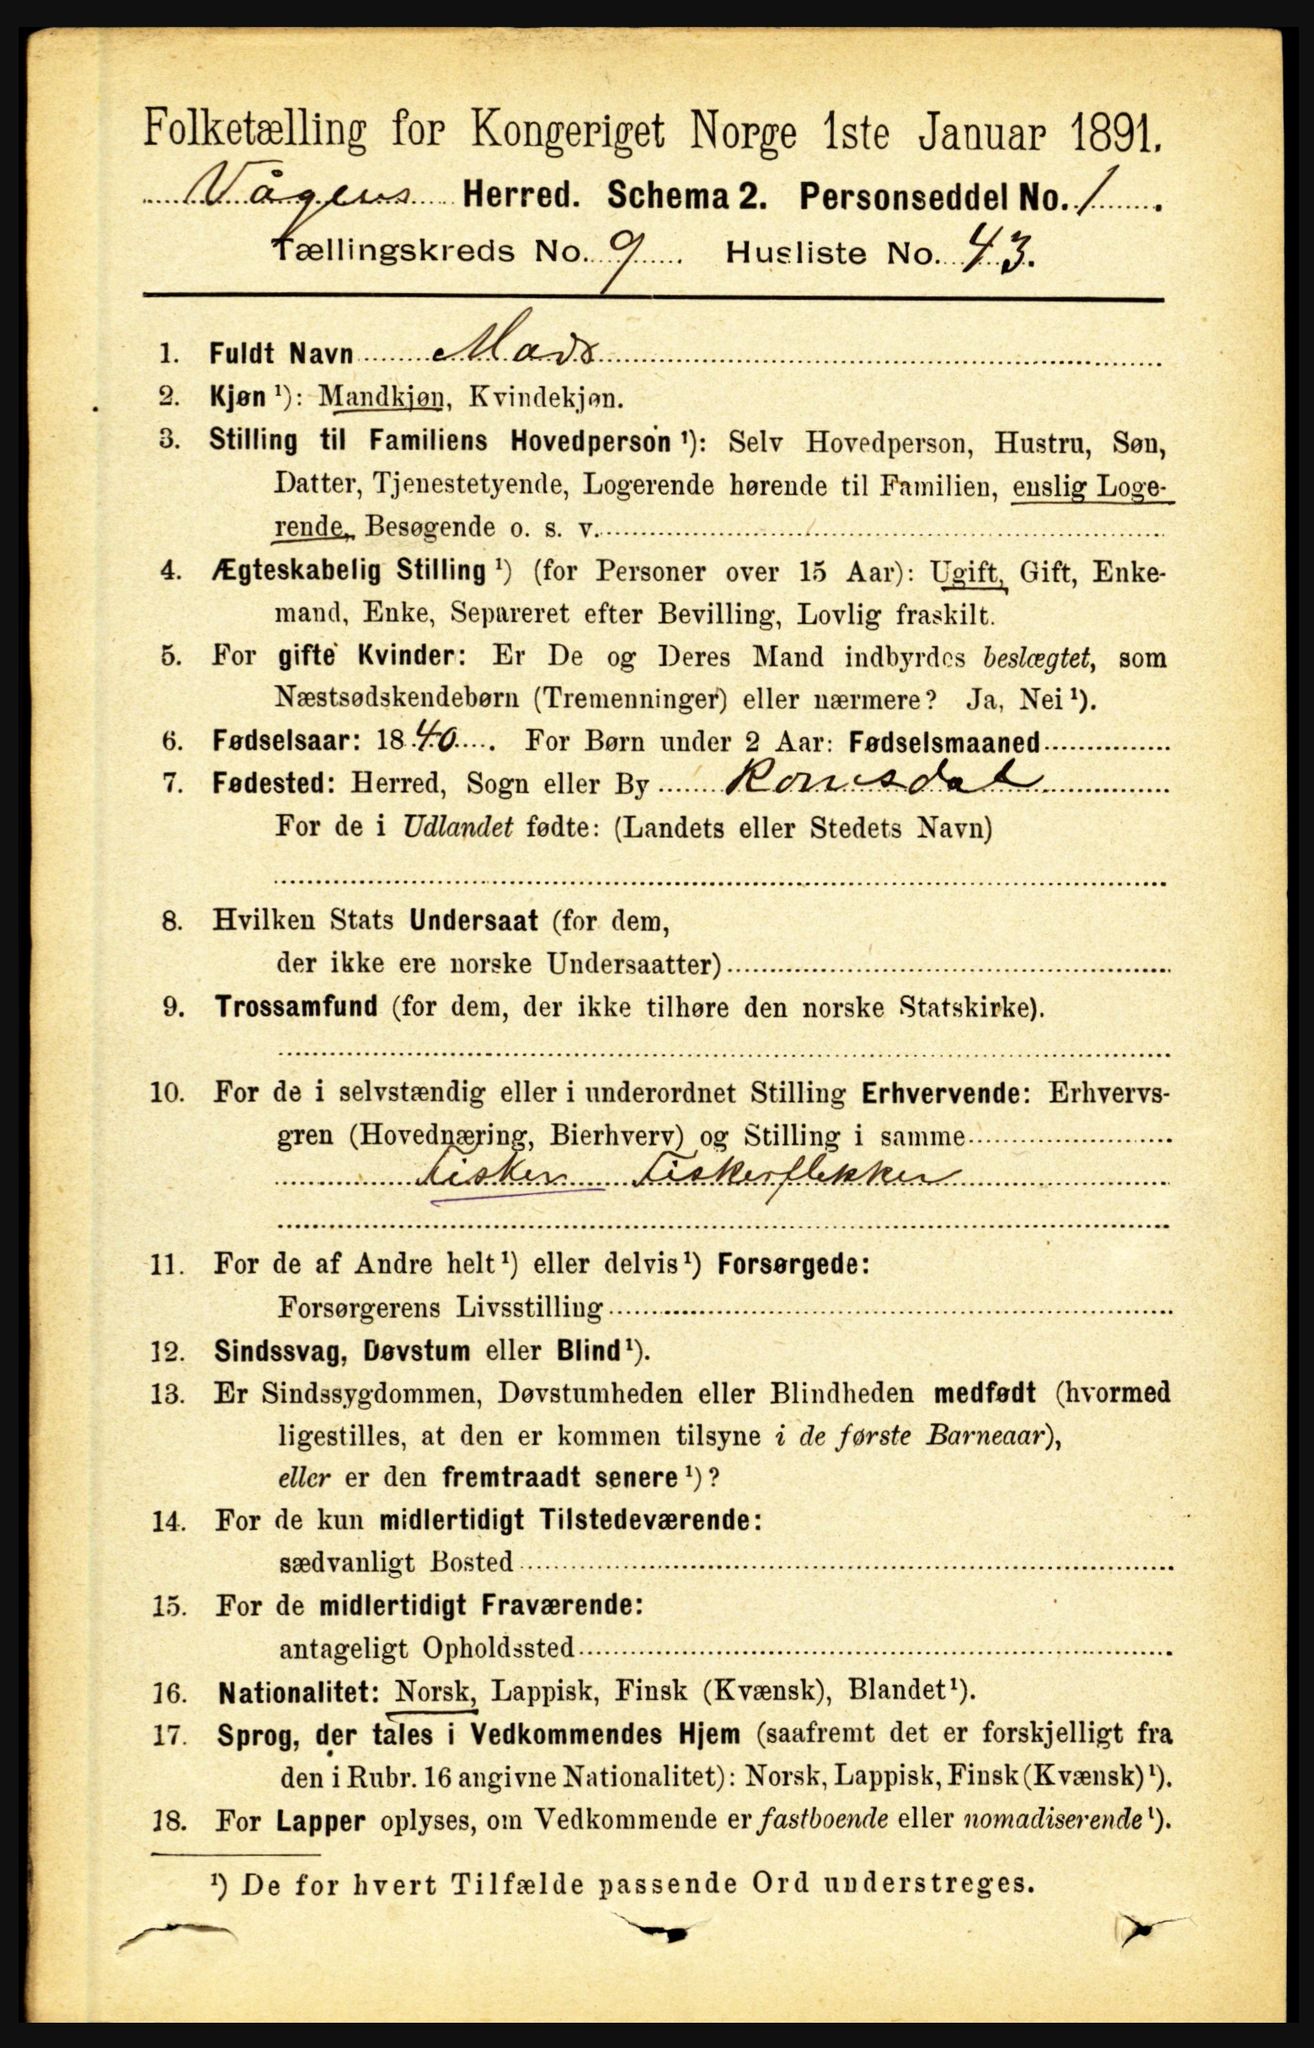 Folketælling for Kongeriget Norge 1ste Januar 1891.
Vågens Herred. Schema 2. Personseddel No. 1.
Tællingskreds No. 9. Husliste No. 43.
1. Fuldt Navn Mads
2. Kjøn ¹): Mandkjøn, Kvindekjøn.
3. Stilling til Familiens Hovedperson ¹): Selv Hovedperson, Hustru, Søn,
Datter, Tjenestetyende, Logerende hørende til Familien, enslig Loge-
rende, Besøgende o. s. v.
4. Ægteskabelig Stilling ¹) (for Personer over 15 Aar): Ugift, Gift, Enke-
mand, Enke, Separeret efter Bevilling, Lovlig fraskilt.
5. For gifte Kvinder: Er De og Deres Mand indbyrdes beslægtet, som
Næstsødskendebørn (Tremenninger) eller nærmere? Ja, Nei ¹).
6. Fødselsaar: 1840. For Børn under 2 Aar: Fødselsmaaned
7. Fødested: Herred, Sogn eller By Romsdal
For de i Udlandet fødte: (Landets eller Stedets Navn)
8. Hvilken Stats Undersaat (for dem,
der ikke ere norske Undersaatter)
9. Trossamfund (for dem, der ikke tilhøre den norske Statskirke).
10. For de i selvstændig eller i underordnet Stilling Erhvervende: Erhvervs-
gren (Hovednæring, Bierhverv) og Stilling i samme
Fisker Fiskerflekker
11. For de af Andre helt ¹) eller delvis ¹) Forsørgede:
Forsørgerens Livsstilling
12. Sindssvag, Døvstum eller Blind ¹).
13. Er Sindssygdommen, Døvstumheden eller Blindheden medfødt (hvormed
ligestilles, at den er kommen tilsyne i de første Barneaar),
eller er den fremtraadt senere ¹)?
14. For de kun midlertidigt Tilstedeværende:
sædvanligt Bosted
15. For de midlertidigt Fraværende:
antageligt Opholdssted
16. Nationalitet: Norsk, Lappisk, Finsk (Kvænsk), Blandet ¹).
17. Sprog, der tales i Vedkommendes Hjem (saafremt det er forskjelligt fra
den i Rubr. 16 angivne Nationalitet): Norsk, Lappisk, Finsk (Kvænsk) ¹).
18. For Lapper oplyses, om Vedkommende er fastboende eller nomadiserende ¹).
¹) De for hvert Tilfælde passende Ord understreges.